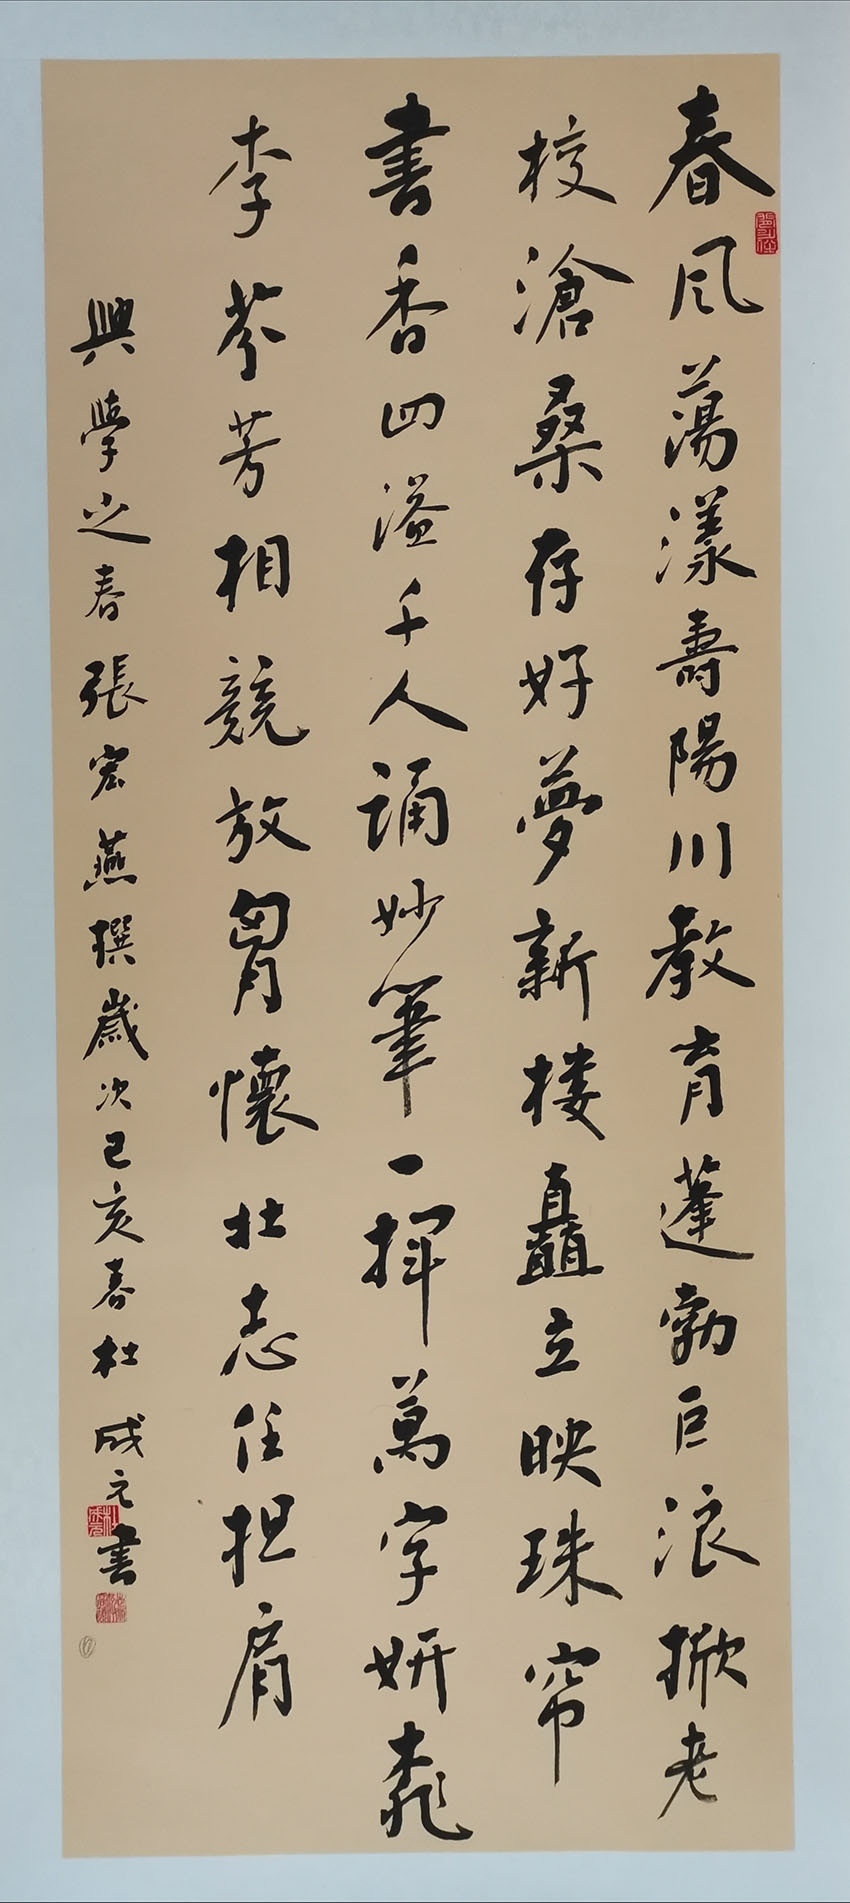 春風蕩漾壽陽川教育蓬勃巨浪掀老
校滄桑存好夢新楼矗立映珠帘
書香四溢千人诵妙筆一揮萬字妍桃
李芬芳相競放胷懷壯志任担肩
興學之春張宏燕撰歲次己亥春杜成元書